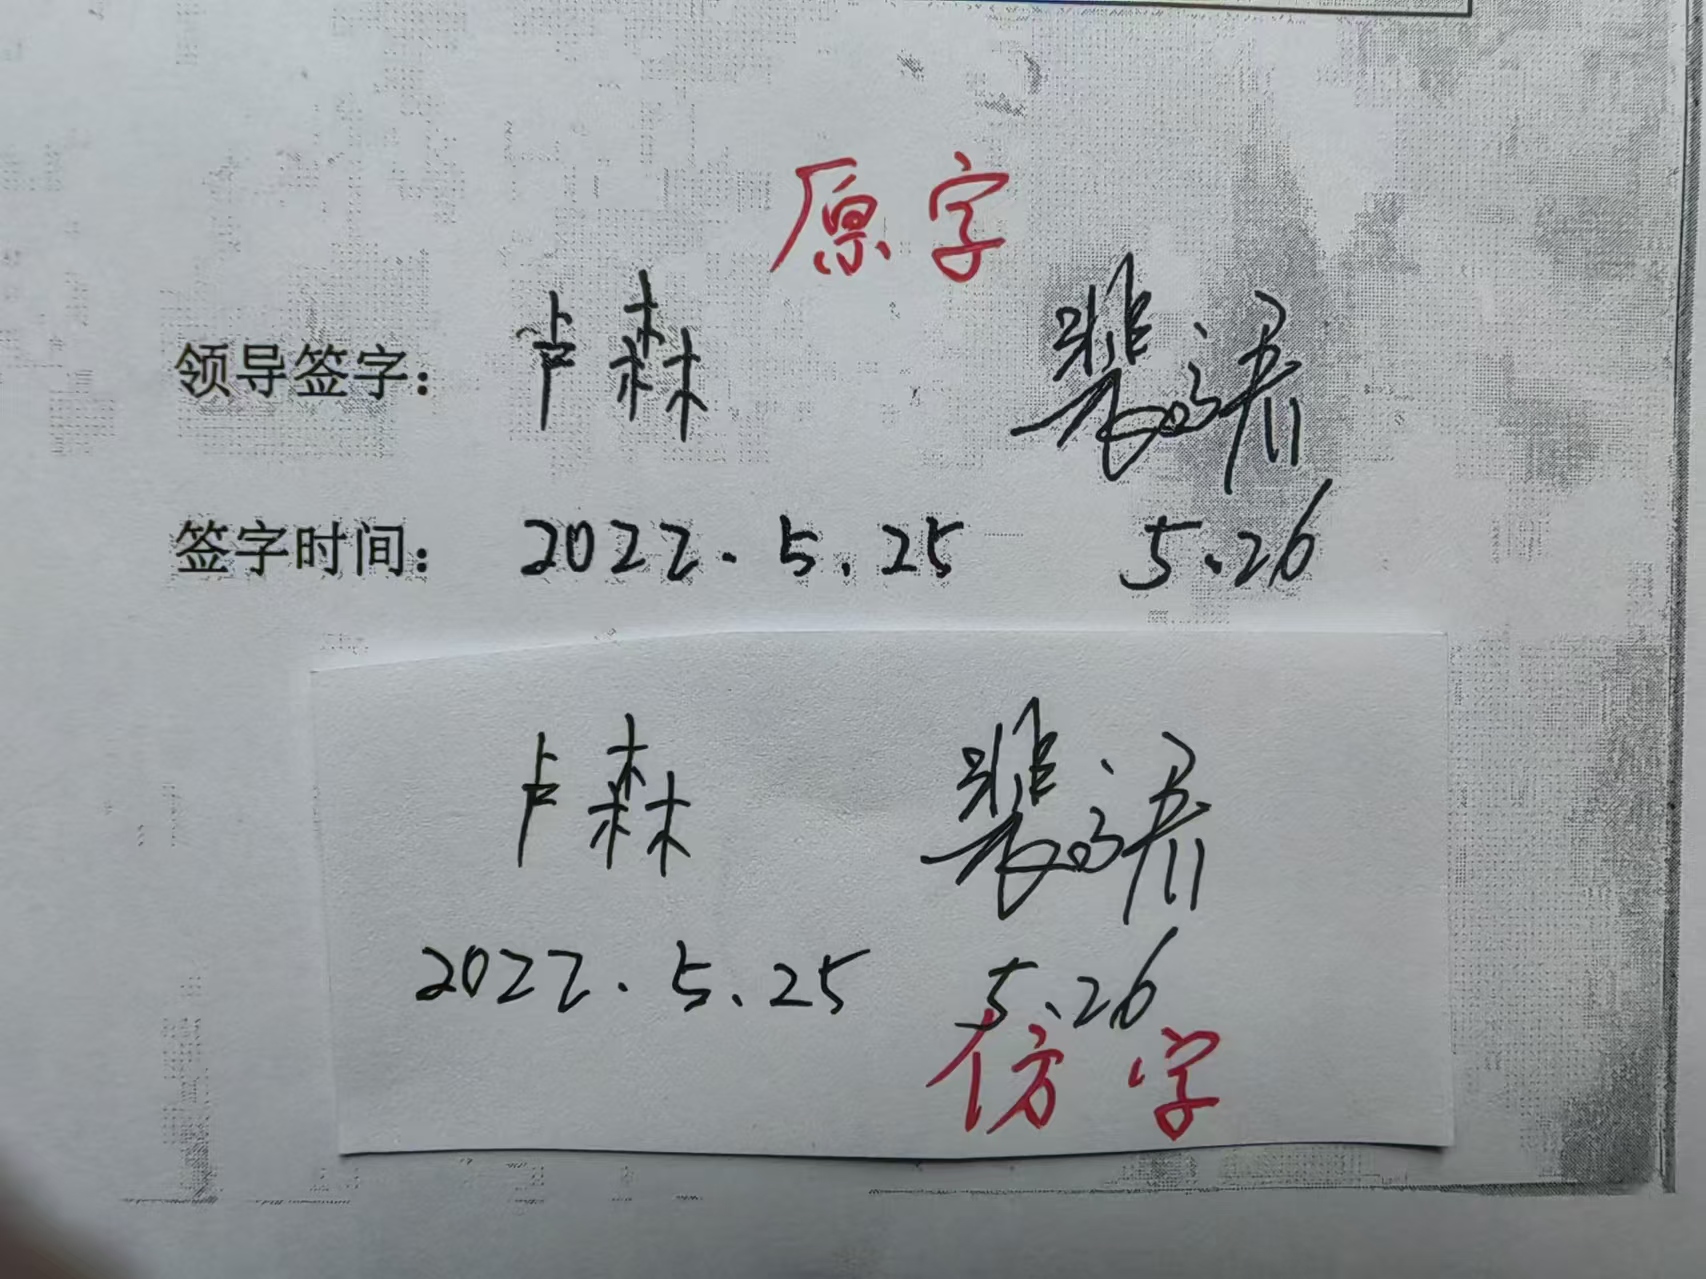 原字
领导签字: 卢森 裴涛
签字时间: 2022.5.25 5.26
卢森 裴涛
2022.5.25 5.26
仿字